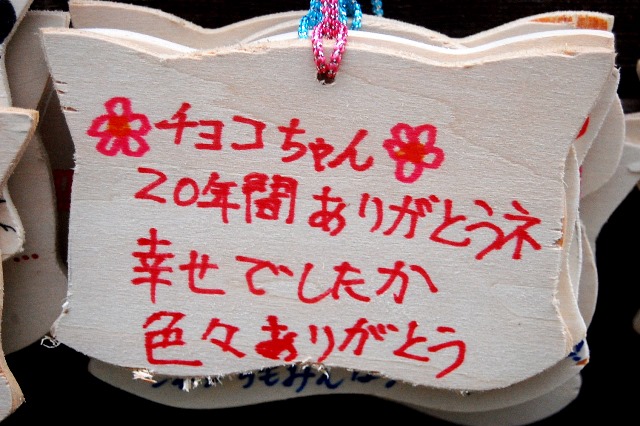 チョコちゃん
20年間ありがとうネ
幸せでしたか
色々ありがとう